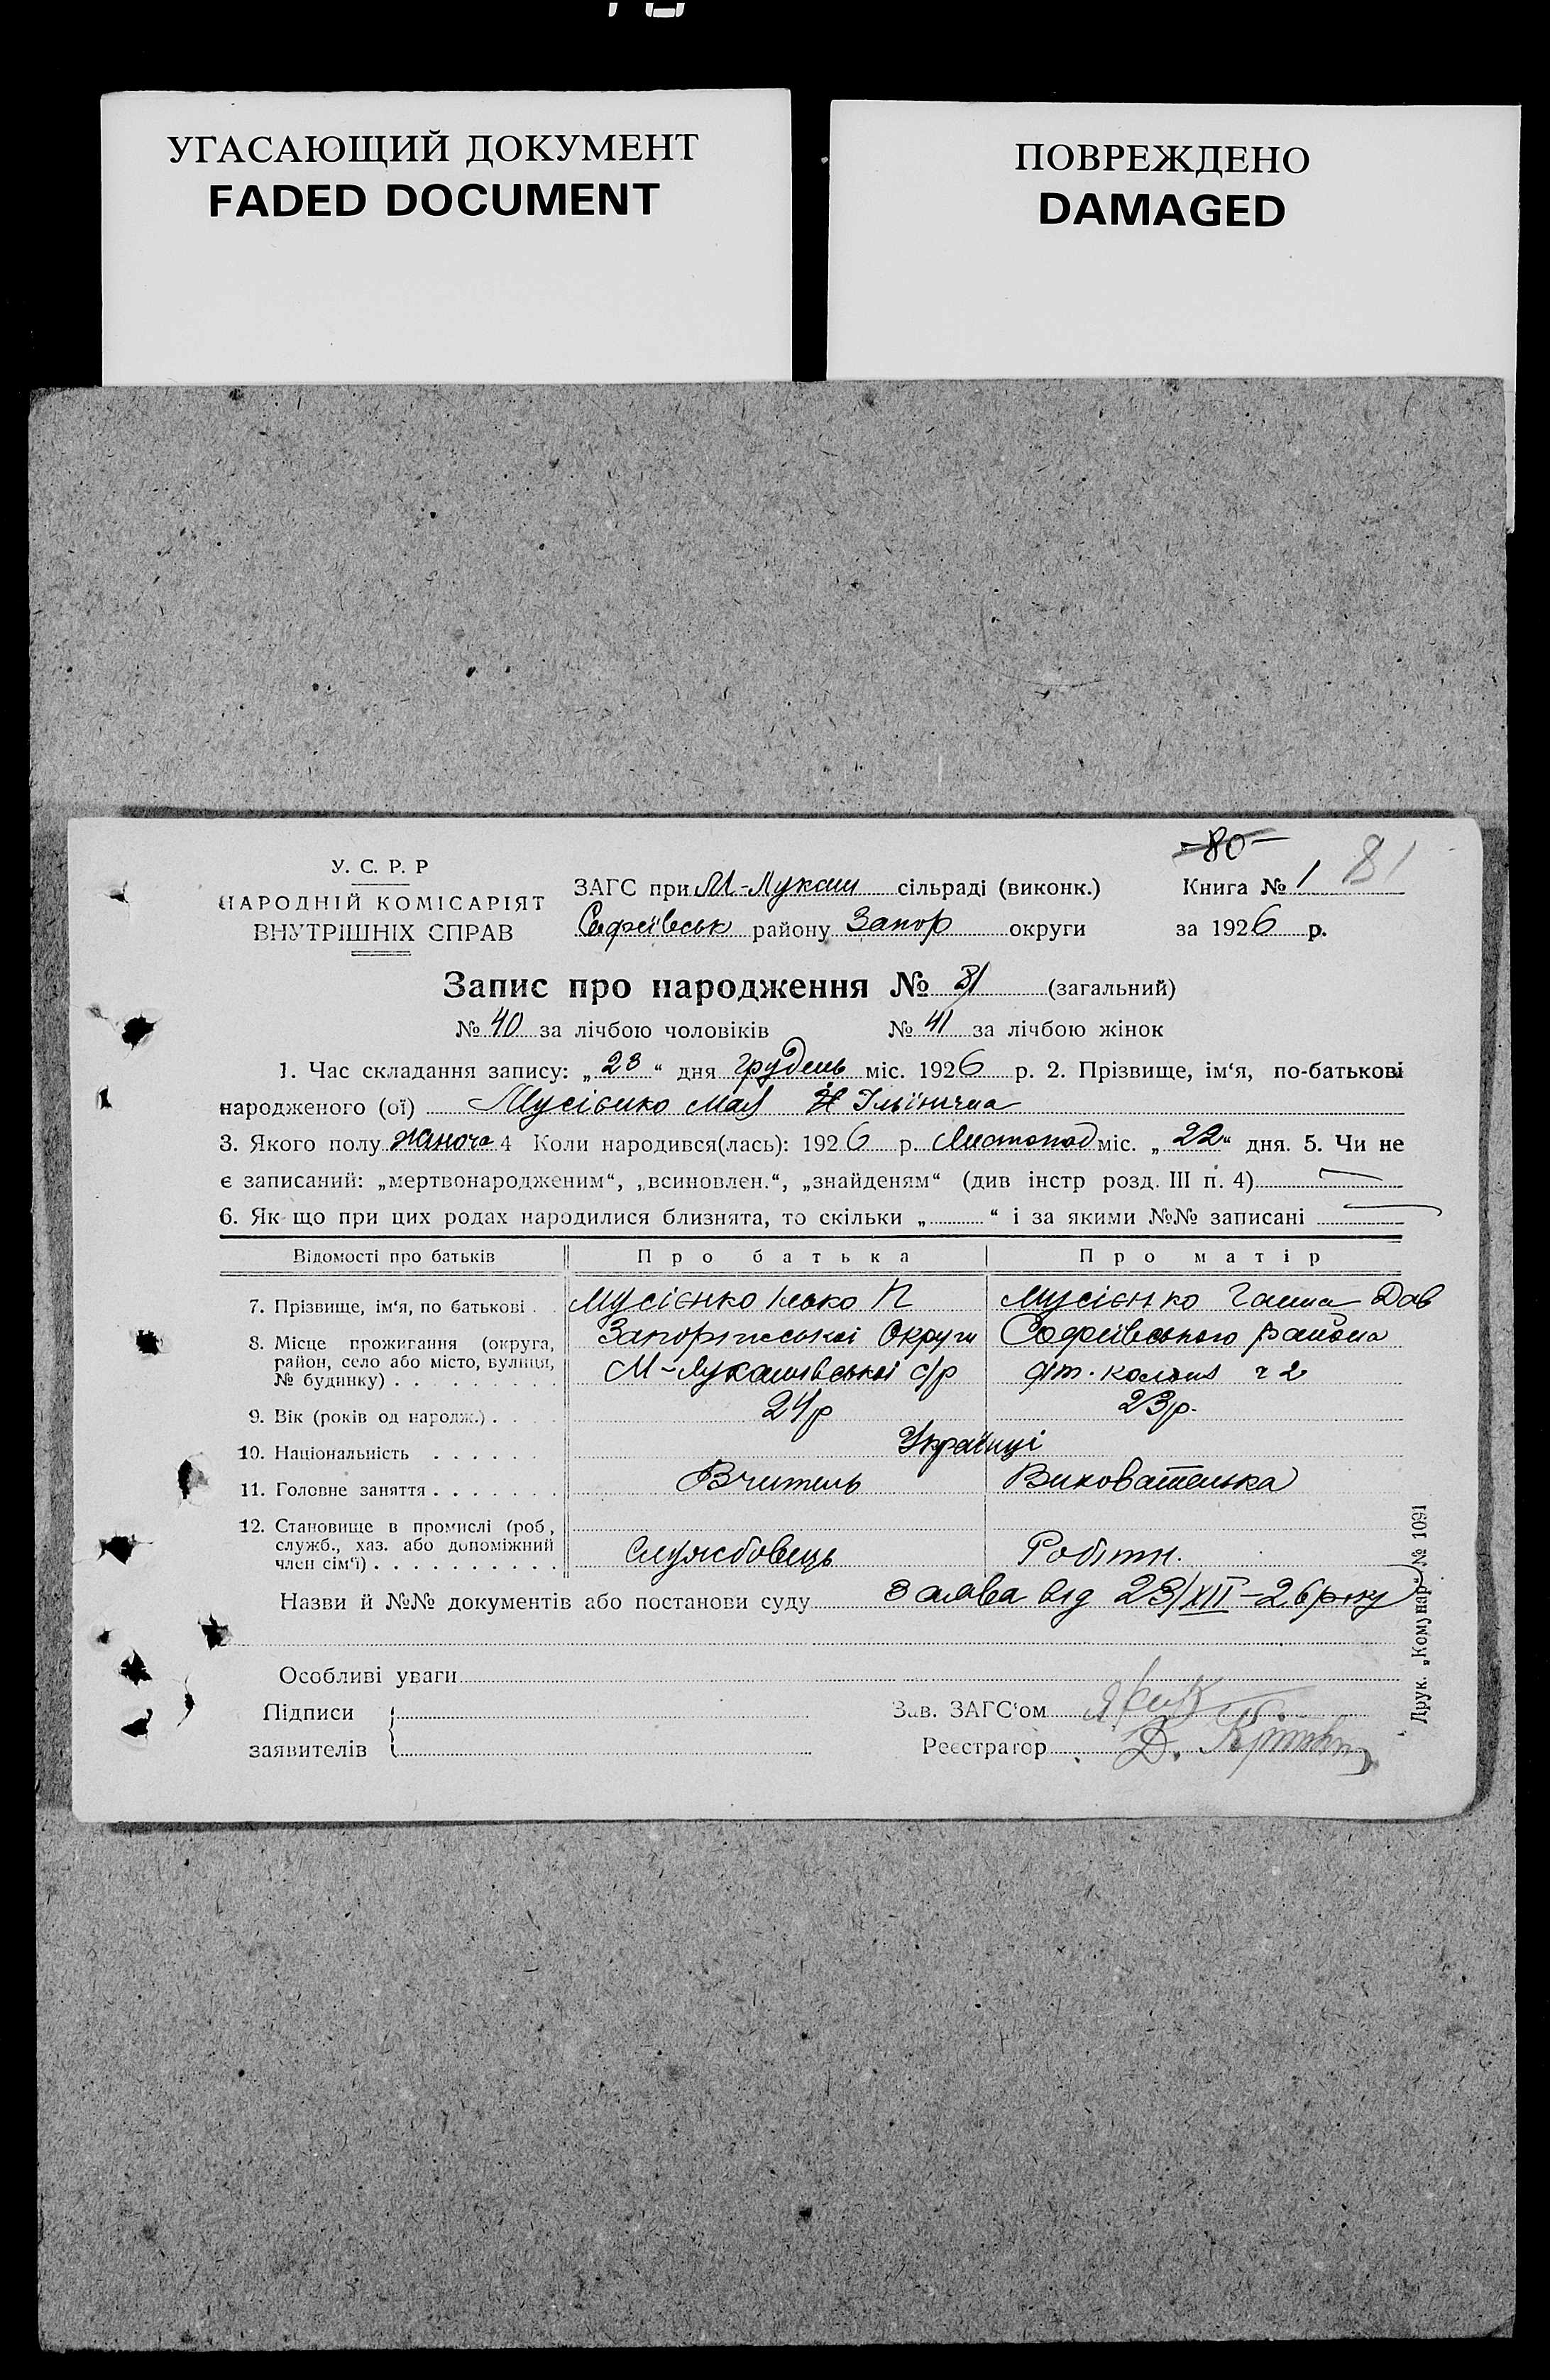 УГАСАЮЩИЙ ДОКУМЕНТ
FADED DOCUMENT
ПОВРЕЖДЕНО
DAMAGED
80
81
У. С. Р. Р
НАРОДНІЙ КОМІСАРІЯТ
ВНУТРІШНІХ СПРАВ
ЗАГС при М-Лукаш сільраді (виконк.) Книга № 1
Софіївськ району Запор округи за 1926 р.
Запис про народження № 81 (загальний)
№ 40 за лічбою чоловіків № 41 за лічбою жінок
1. Час складання запису: „23“ дня грудень міс. 1926 р. 2. Прізвище, ім‘я, по-батькові
народженого (ої) Мусієнко Мая Ільїнична
3. Якого полу жіноча 4 Коли народився(лась): 1926 р. Листопад міс. „22“ дня. 5. Чи не
є записаний: „мертвонародженим“, „всиновлен.“, „знайденям“ (див інстр розд. III п. 4)
6. Як що при цих родах народилися близнята, то скільки „ “ і за якими №№ записані
Відомості про батьків Про батька Про матір
7. Прізвище, ім‘я, по батькові Мусієнко Ілько П Мусієнко Ганна Дав
8. Місце прожигання (округа, район, село або місто, вулиця, № будинку) Запоріжської Округи Софіївського района
М-Лукашівської с/р діт. колонія ч 2
9. Вік (років од народж.) 24р 23р.
10. Національність Українці
11. Головне заняття Вчитель Вихователька
12. Становище в промислі (роб, служб., хаз. або допоміжний член сім‘ї) Службовець Робітн.
Назви й №№ документів або постанови суду Заява від 23/XII-26 року
Особливі уваги
Підписи заявителів
Зав. ЗАГС‘ом
Реєстратор Д.
Друк. „Комунар“ № 1091